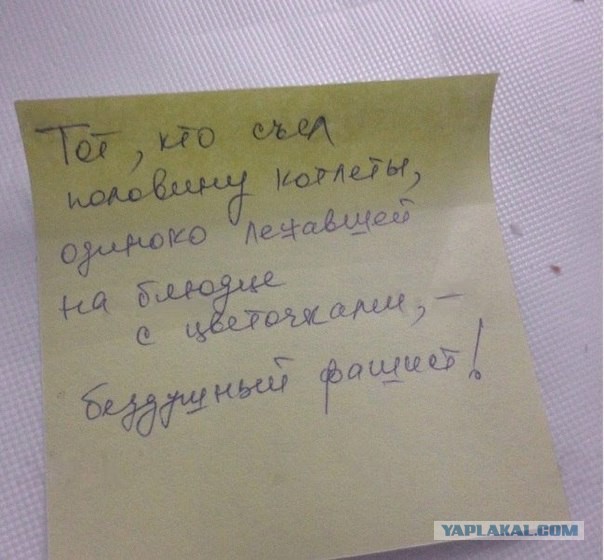 Тот, кто съел
половину котлеты,
одиноко лежавшей
на блюдце
с цветочками, –
бездушный фашист!
YAPLAKAL.COM